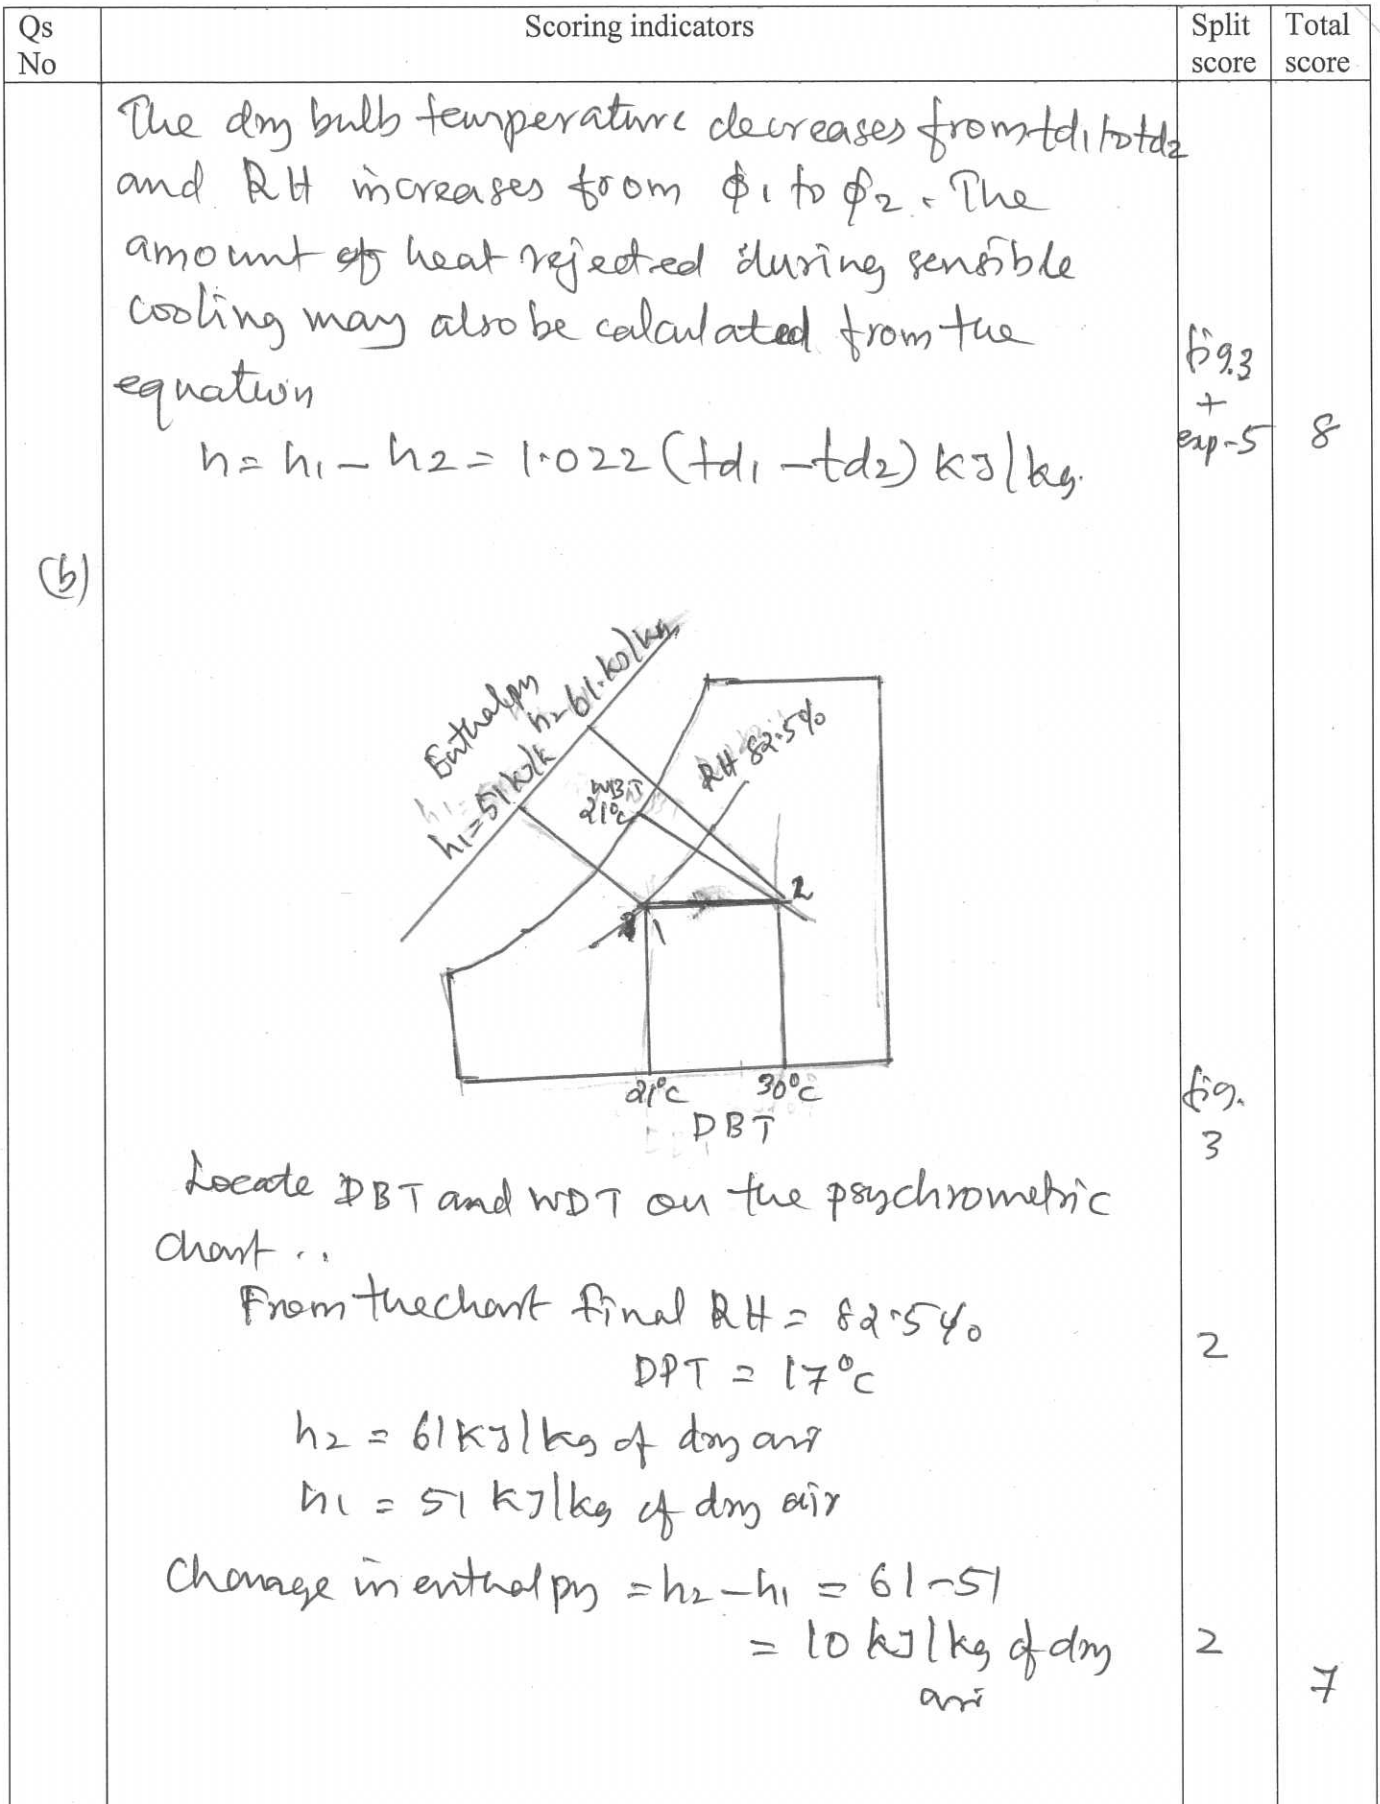 Qs No
Scoring indicators
Split score
Total score
The dry bulb temperature decreases from td1 to td2
and RH increases from ϕ1 to ϕ2. The
amount of heat rejected during sensible
cooling may also be calculated from the
equation
h = h1 - h2 = 1.022 (td1 - td2) kJ/kg.
fig.3
+
exp-5
8
(b)
Enthalpy
h2 61.kJ/kg
h1 = 51 kJ/k
WBT
21°C
RH 82.5%
1
2
21°C
30°C
DBT
fig.
3
Locate DBT and WDT on the psychrometric
chart ..
From the chart final RH = 82.5%
2
DPT = 17°C
h2 = 61 kJ/kg of dry air
h1 = 51 kJ/kg of dry air
Chanage in enthalpy = h2 - h1 = 61 - 51
= 10 kJ/kg of dry
air
2
7